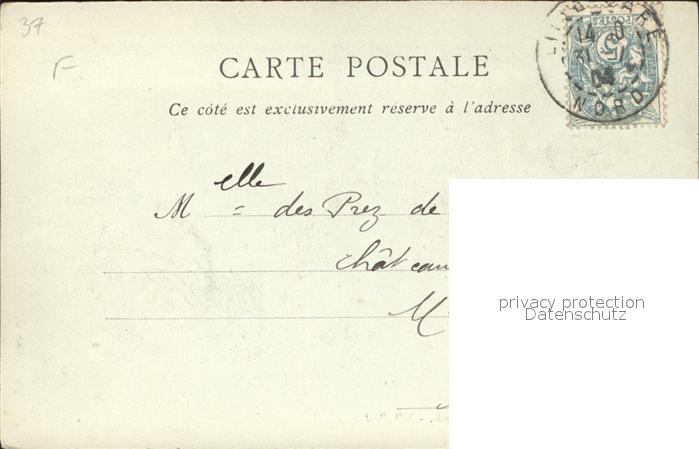 37
F
CARTE POSTALE
Ce côté est exclusivement réservé à l'adresse
M elle = des Prez de
Château
M
POSTES
5
LILLE GARE
04
NORD
privacy protection
Datenschutz